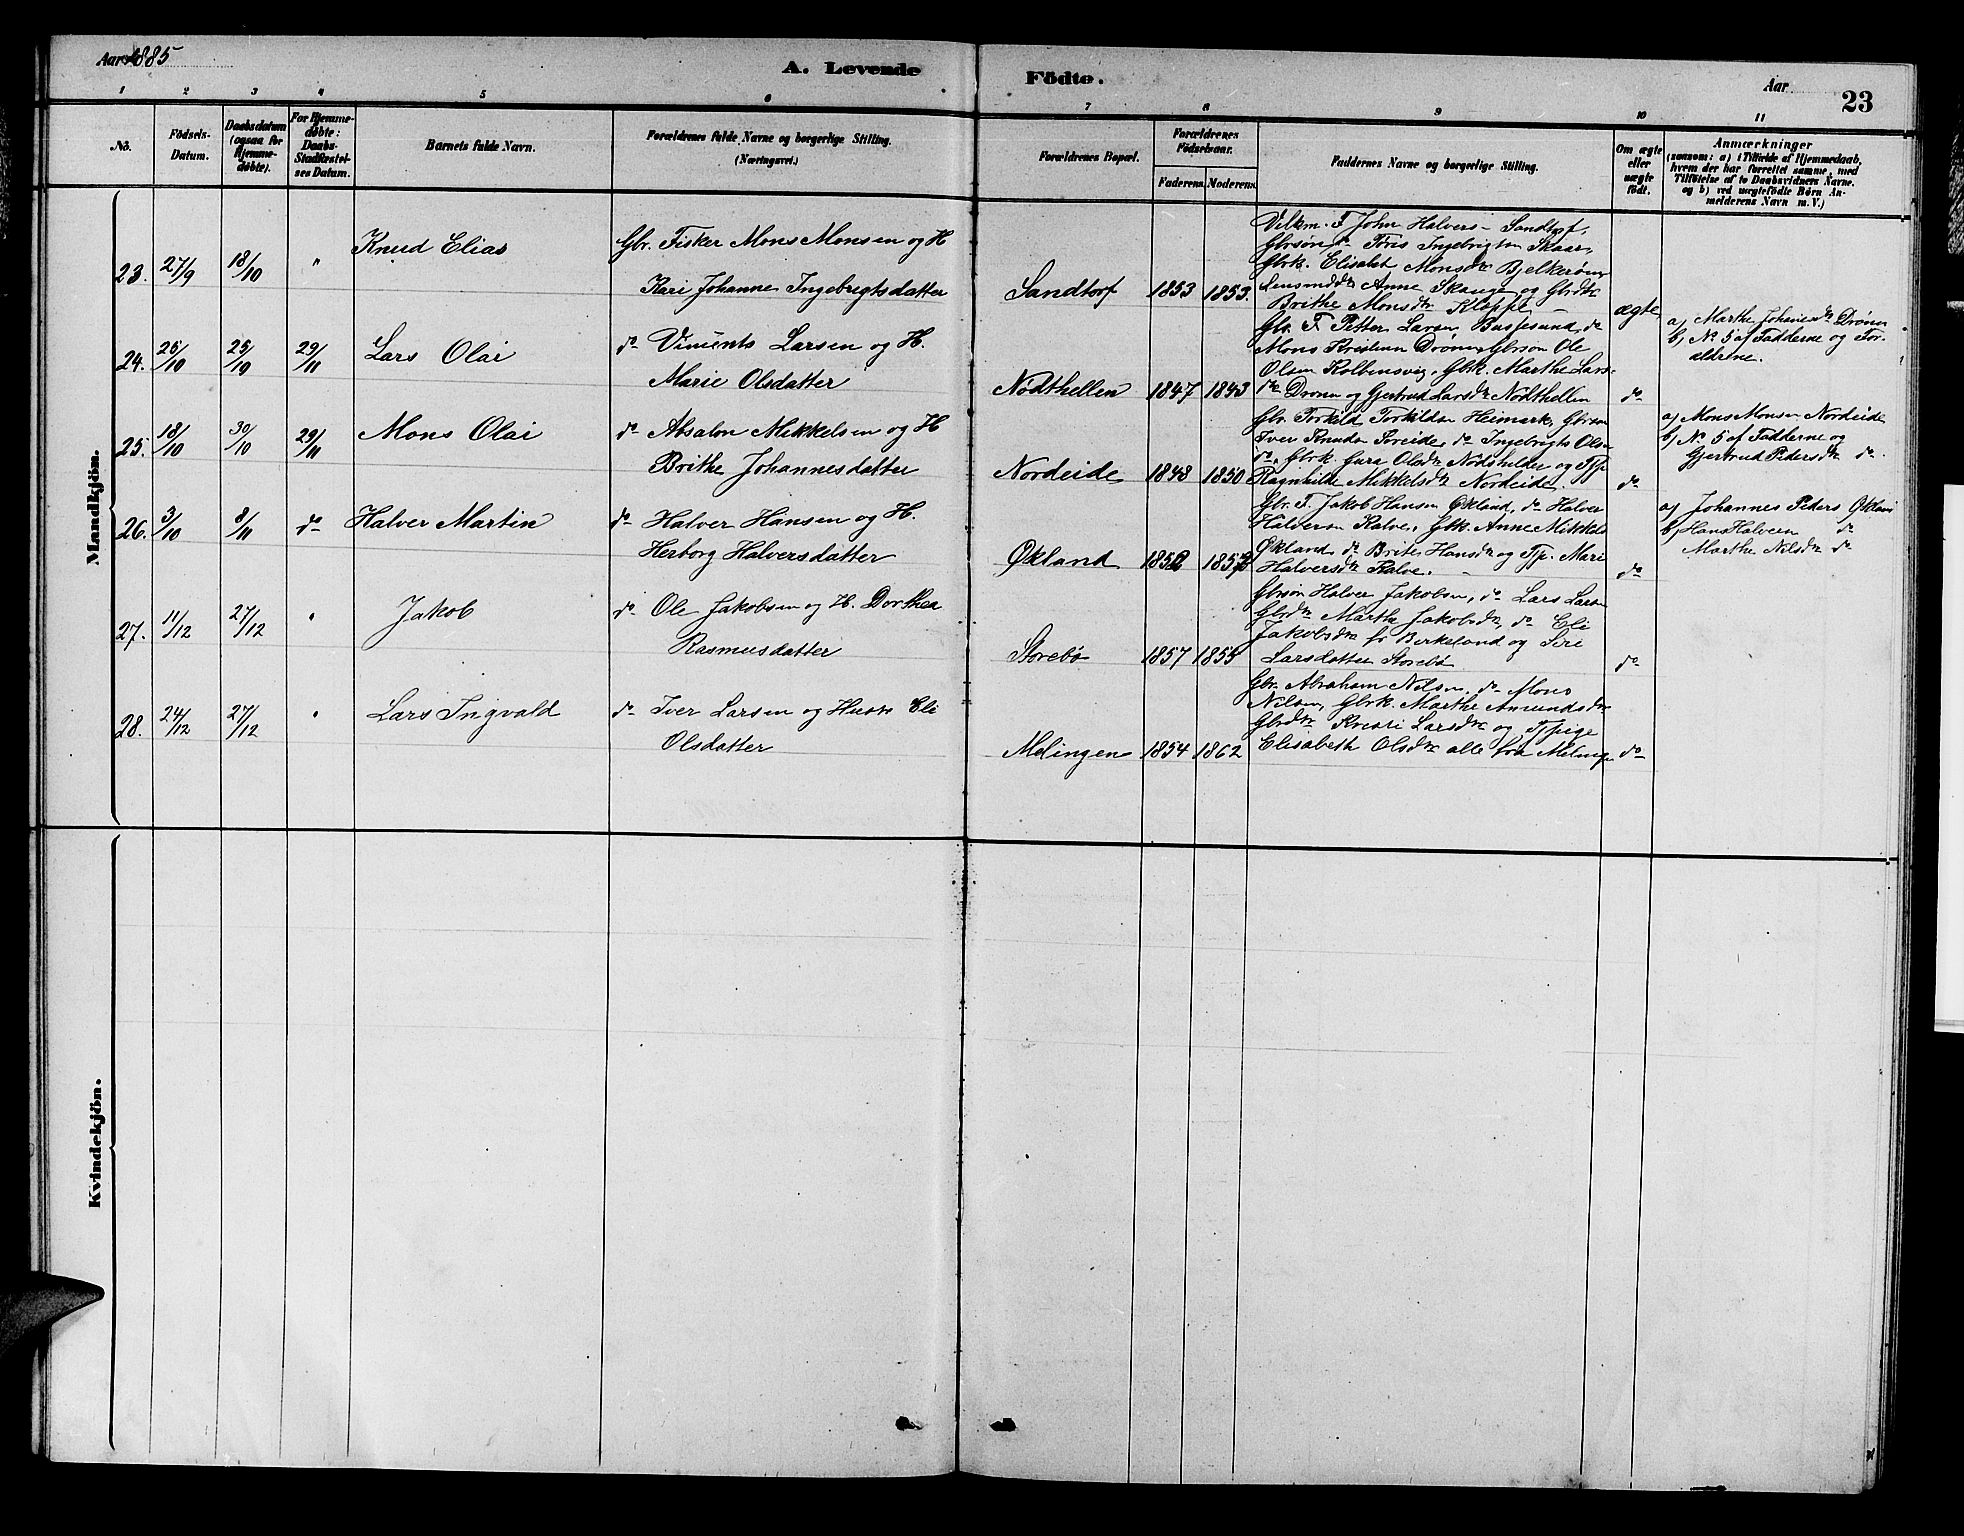 Aar 1885
A. Levende
Födte.
Aar
23
1 2 3 4 5 6 7 8 9 10 11
No.
Födsels-Datum.
Daabsdatum (ogsaa for Hjemme-døbte).
For Hjemme-døbte: Daabs-Stadfæstel-ses Datum.
Barnets fulde Navn.
Forældrenes fulde Navne og borgerlige Stilling.
(Næringsvei.)
Forældrenes Bopæl.
Forældrenes Födselsaar.
Faderens. Moderens.
Faddernes Navne og borgerlige Stilling.
Om ægte eller uægte födt.
Anmærkninger
(saasom: a) i Tilfælde af Hjemmedaab,
hvem der har forrettet samme, med
Tilföielse af to Daabsvidners Navne.
og b) ved uægtefödte Börn An-
melderens Navn m. V.)
Mandkjön.
23. 27/9 18/10 " Knud Elias
Gbr. Fisker Mons Monsen og H.
Kari Johanne Ingebrigtsdatter
Sandtorf 1853 1853.
Vilkm. F John Halvers- Sandtorf,
Gbrsøn do Tøris Ingebrigtsn Skaar,
Gbrk. Elisabet Monsdtr Bjelkerøen
Anne Skauge og Gbrdtr
Brithe Monsdtr Kloppe
ægte
24. 25/10 29/11 Lars Olai
do Larsen og H.
Marie Olsdatter
Nødthellen 1847 1843
Gbr. F. Petter Larsen Bussesund, do
Mons Kristensen Drønen, Gbrson Ole
Olsen Kolbensvig, Gbrk. Marthe Lars-
dtr Drønen og Gjertrud Larsdtr Nødthellen
do
a) Marthe Johannesdtr Drønen
b) No 5 af Fadderne og For-
ældrene.
25. 18/10 30/10 29/11 Mons Olai
do Absalon Mikkelsen og H
Brithe Johannesdatter
Nordeide 1848 1850
Gbr. Torkild Torkildsen Heimark, Gbrson
Iver Knudsn Søreide, do Ingebrigt Olsn
do, Gbrk. Gura Olsdtr Nødshelder og Tjp.
Ragnhilde Mikkelsdtr Nordeide.
do
a) Mons Monsen Nordeide
b) No 5 af Fadderne og
Gjertrud Pedersdtr do
26. 3/10 8/11 do Halver Martin
do Halver Hansen og H.
Herborg Halversdatter
Økland
Gbr. F. Jakob Hansen Økland, do Halver
Halversn Kalve, Gbk. Anne Mikkels
Økland, do Brite Hansdtr og Tjp. Mari
Halversdtr Kalve.
do
a) Johannes Peders Økland
b) Hans Halversn do
Marthe Nilsdtr do
27. 11/12 27/12 " Jakob
do Ole Jakobsen og H. Dorthea
Rasmusdatter
Storebø 1857 1855
Gbrsøn Halver Jakobsen, do Lars Larsn
Gbrdtr Marthe Jakobsdtr, do Eli
Jakobsdtr fr Birkeland og Siri
Larsdatter Storebø
do
28. 24/12 27/12 " Lars Ingvald
do Iver Larsen og Hustr. Eli
Olsdatter
Melingen 1854 1862
Gbr. Abraham Nilsen, do Mons
Nilsen, Gbrk. Marthe Amundsdtr
Gbrdtr Larsdtr og Tjpige
Elisabeth Olsdtr alle fra Melingn
do
Kvindekjön.